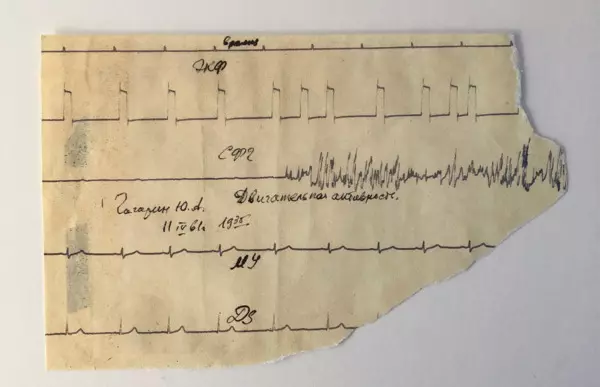 Время
ЭКФ
СФГ
Гагарин Ю.А. Двигательная активность.
11 IV 61г. 19 35
МУ
DS